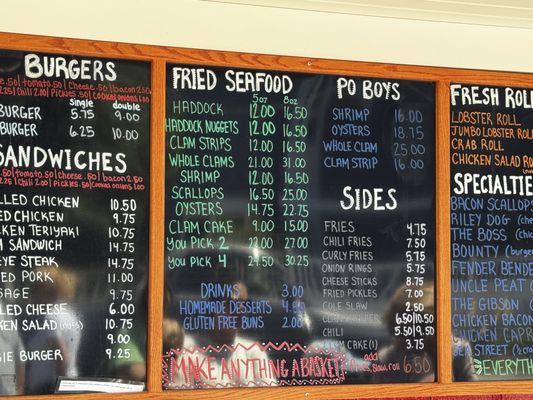 BURGERS
.50/tomato.50/Cheese.50/bacon
2.25/Chili 2.00/Pickles.50/cooked onions
Single double
BURGER 5.75 9.00
BURGER 6.25 10.00
SANDWICHES
.50/tomato.50/Cheese.50/bacon
2.25/Chili 2.00/Pickles.50/Cooked onions
LLED CHICKEN 10.50
ED CHICKEN 9.75
KEN TERIYAKI 10.75
M SANDWICH 14.75
EYE STEAK 14.75
ED PORK 11.00
SAGE 9.75
LLED CHEESE 6.00
KEN SALAD 10.75
9.00
GIE BURGER 9.25
FRIED SEAFOOD
5oz 8oz
HADDOCK 12.00 16.50
HADDOCK NUGGETS 12.00 16.50
CLAM STRIPS 12.00 16.50
WHOLE CLAMS 21.00 31.00
SHRIMP 12.00 16.50
SCALLOPS 16.50 25.00
OYSTERS 14.75 22.75
CLAM CAKE 9.00 15.00
YOU PICK 2 22.00 27.00
YOU PICK 4 24.50 30.25
DRINKS 3.00
HOMEMADE DESSERTS 4.50
GLUTEN FREE BUNS 2.00
MAKE ANYTHING A BASKET!
add
Fries, Slaw, roll 6.50
PO BOYS
SHRIMP 16.00
OYSTERS 18.75
WHOLE CLAM 25.00
CLAM STRIP 16.00
SIDES
FRIES 4.75
CHILI FRIES 7.50
CURLY FRIES 5.75
ONION RINGS 5.75
CHEESE STICKS 8.75
FRIED PICKLES 7.00
COLE SLAW 2.50
6.50/10.50
CHILI 5.50/9.50
CLAM CAKE(1) 3.75
FRESH ROLL
LOBSTER ROLL
JUMBO LOBSTER ROLL
CRAB ROLL
CHICKEN SALAD RO
SPECIALTIE
BACON SCALLOPS
RILEY DOG
THE BOSS
BOUNTY
FENDER BENDE
UNCLE PEAT
THE GIBSON
CHICKEN BACON
CHICKEN CAPR
SEA STREET
EVERYTH